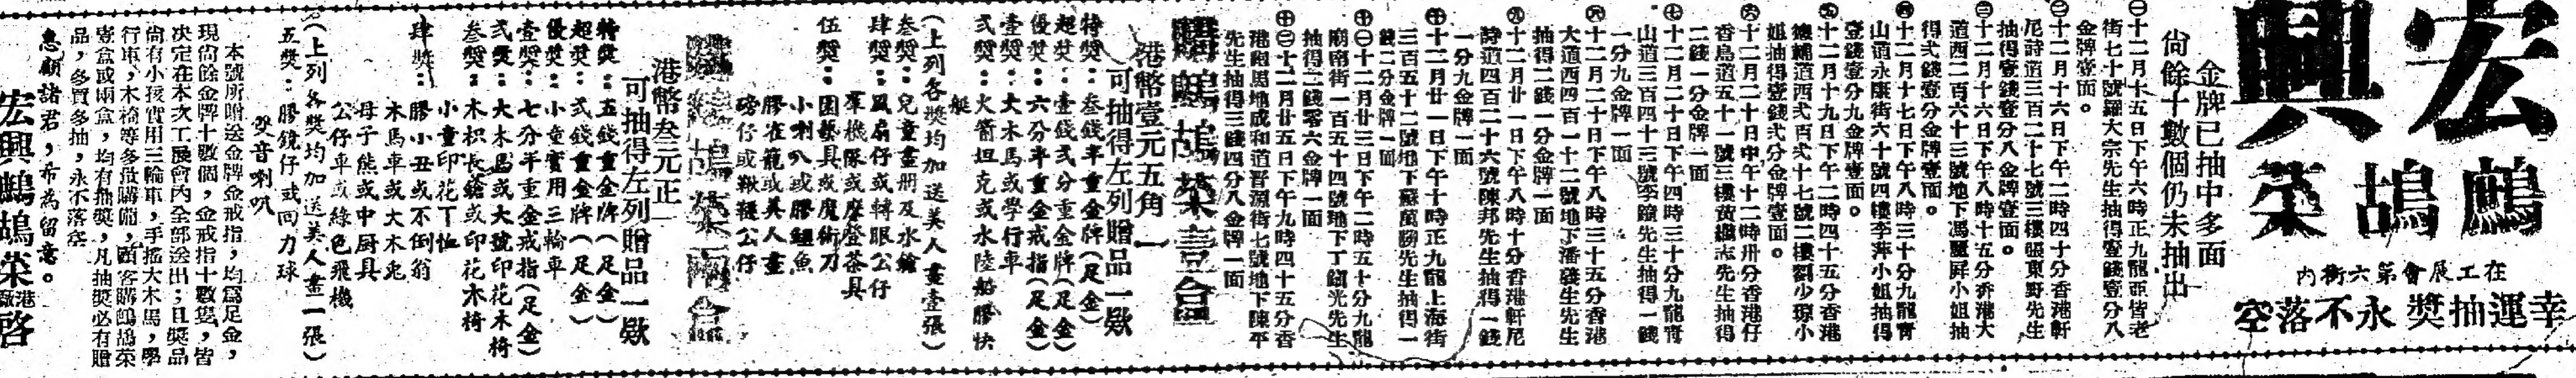 宏興
鷓鴣菜
在工展會第六街內
幸運抽獎永不落空
金牌已抽中多面
尚餘十數個仍未抽出
㊀十二月十五日下午六時正九龍西皆老
街七十號羅大宗先生抽得壹錢壹分八
金牌壹面。
㊁十二月十六日下午二時四十分香港軒
尼詩道三百二十七號三樓張東野先生
抽得壹錢壹分八金牌壹面。
㊂十二月十六日下午八時十五分香港大
道西二百六十三號地下馮麗屏小姐抽
得弍錢壹分金牌壹面。
㊃十二月十七日下午八時三十分九龍寶
山道永康街六十號四樓李萍小姐抽得
壹錢壹分九金牌壹面。
㊄十二月十九日下午二時四十五分香港
德輔道西弍百弍十七號二樓劉少瓊小
姐抽得壹錢弍分金牌壹面。
㊅十二月二十日中午十二時卅分香港仔
香島道五十一號三樓黃繼志先生抽得
二錢一分金牌一面
㊆十二月二十日下午四時三十分九龍寶
山道三百四十三號李鏡先生抽得一錢
一分九金牌一面
㊇十二月二十日下午八時三十五分香港
大道西四百一十二號地下潘發生先生
抽得二錢一分金牌一面
㊈十二月廿一日下午八時十分香港軒尼
詩道四百二十六號陳邦先生抽得一錢
一分九金牌一面
㊉十二月廿一日下午十時正九龍上海街
三百五十二號地下蘇萬勝先生抽得一
錢二分金牌一面
十二月廿三日下午二時五十分九龍
廟南街一百五十四號地下丁錦光先生
抽得二錢零六金牌一面
十二月廿五日下午九時四十五分香
港跑馬地成和道晋源街七號地下陳平
先生抽得三錢四分八金牌一面
購鷓鴣菜壹盒
港幣壹元五角
可抽得左列贈品一欵
特獎：叁錢半重金牌（足金）
超獎：壹錢弍分重金牌（足金）
優獎：六分半重金戒指（足金）
壹獎：大木馬或學行車
弍獎：火箭坦克或水陸船膠快
艇
叁獎：兒童畫冊及水繪
肆獎：風扇仔或轉眼公仔
軍機隊或摩登茶具
伍獎：園藝具或魔術刀
小喇叭或膠鯉魚
膠雀籠或美人畫
磅仔或鞦韆公仔
（上列各獎均加送美人畫壹張）
購鷓鴣菜兩盒
港幣叁元正
可抽得左列贈品一欵
特獎：五錢重金牌（足金）
超獎：弍錢重金牌（足金）
優獎：小童實用三輪車
壹獎：七分半重金戒指（足金）
弍獎：大木馬或大號印花木椅
叁獎：木枳長鎗或印花木椅
小童印花丅恤
肆獎：膠小丑或不倒翁
木馬車或大木兎
母子熊或中厨具
公仔車或綠色飛機
五獎：膠鏡仔或回力球
双音喇叭
（上列各獎均加送美人畫一張）
本號所贈送金牌金戒指，均爲足金，
現尙餘金牌十數個，金戒指十數隻，皆
決定在本次工展會內全部送出；且獎品
尙有小孩實用三輪車，手搖大木馬，學
行車，木椅等多欵購備，顧客購鷓鴣菜
壹盒或兩盒，均有抽獎，凡抽獎必有贈
品，多買多抽，永不落空
惠顧諸君，希為留意。
宏興鷓鴣菜港廠啓